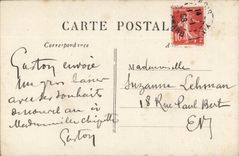 CARTE POSTALE
Gaston envoie
un gros baiser
avec ses souhaits
de nouvel an à
Mademoiselle
Gaston
Mademoiselle
Suzanne Lehman
18 Rue Paul Bert
EV